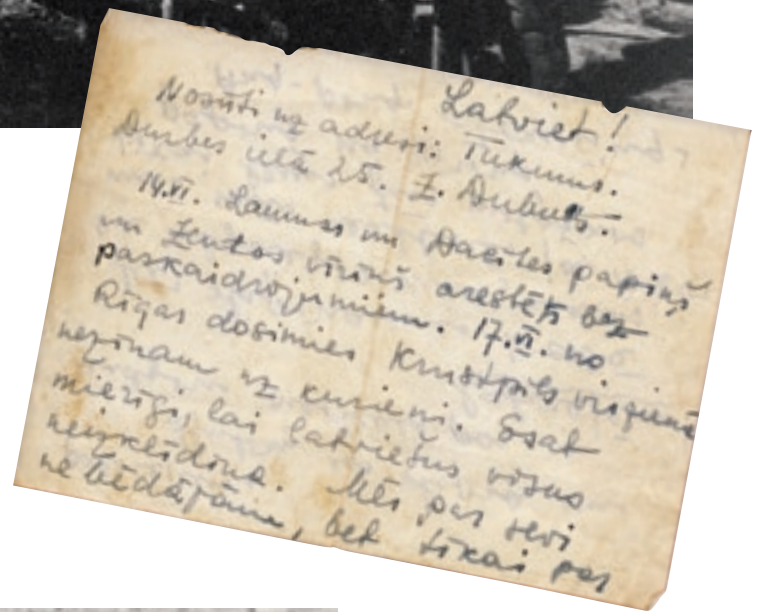 Latviet!
Nosūti uz adresi: Tukums.
Durbes ielā 25. Z.
14.VI. Laumas un Dacītes papiņš
un Zentas vīriņš arestēti bez
paskaidrojumiem. 17.VI. no
Rīgas dosimies Krustpils virzienā
nezinam uz kurieni. Esat
mierīgi, lai latviešus visus
neizklīdina. Mēs par sevi
ne bēdājām, bet tikai par